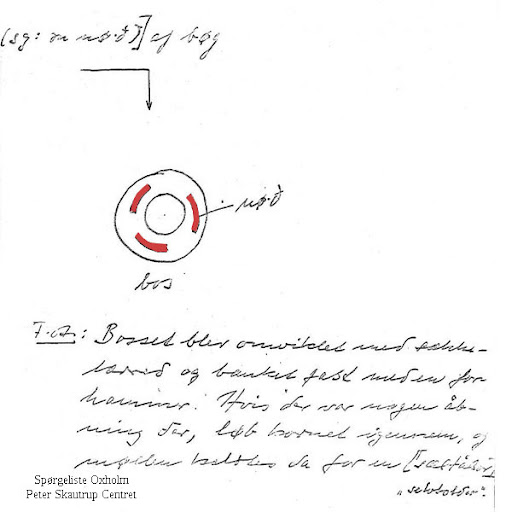 (sg: en nø·ð)] af bøg
nø·ð
bos
F.A.: Bosset blev omviklet med sække-
lærred og banket fast med en for-
hammer. Hvis der var nogen åb-
ning der, løb kornet igennem, og
møllen kaldtes da for en
Spørgeliste Oxholm
Peter Skautrup Centret